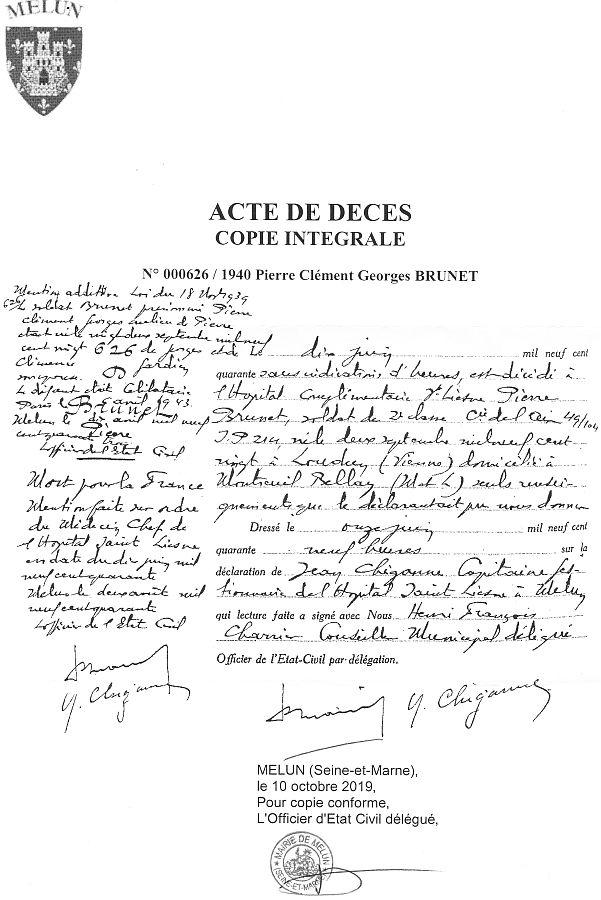 MELUN
ACTE DE DECES
COPIE INTEGRALE
N° 000626 / 1940 Pierre Clément Georges BRUNET
Mention additive Loi du 18
soldat Brunet prénommé Pierre
Clément Georges de Pierre
vingt deux septembre mil neuf
cent vingt 626 de Georges
Clémence Jardin
le défunt était Célibataire
Paris le 6 avril 1943
BRUNET
Melun le avril mil neuf
cent quarante trois
L'officier de l'Etat Civil
Mort pour la France
Mention faite sur ordre
du Médecin Chef de
l'Hopital Saint Liesne
en date du dix juin mil
neuf cent quarante
Melun le deux août mil
neuf cent quarante
L'officier de l'Etat Civil
Y. Chiganne
Le dix juin mil neuf cent
quarante sans indications d'heures, est décédé à
l'Hopital Complémentaire St Liesne Pierre
Brunet, soldat de 2e classe Cie de l'Air 49/104
né le deux septembre mil neuf cent
vingt à Loudun (Vienne) domicilié à
Montreuil Bellay (M et L) seuls rensei-
gnements que le déclarant ait pu nous donner
Dressé le onze juin mil neuf cent
quarante neuf heures sur la
déclaration de Jean Chiganne Capitaine ges-
tionnaire de l'Hopital Saint Liesne à Melun
qui lecture faite a signé avec Nous Henri François
Charrier Conseiller Municipal délégué
Officier de l'Etat-Civil par délégation.
Y. Chiganne
MELUN (Seine-et-Marne),
le 10 octobre 2019,
Pour copie conforme,
L'Officier d'Etat Civil délégué,
MAIRIE DE MELUN
(SEINE-ET-MARNE)